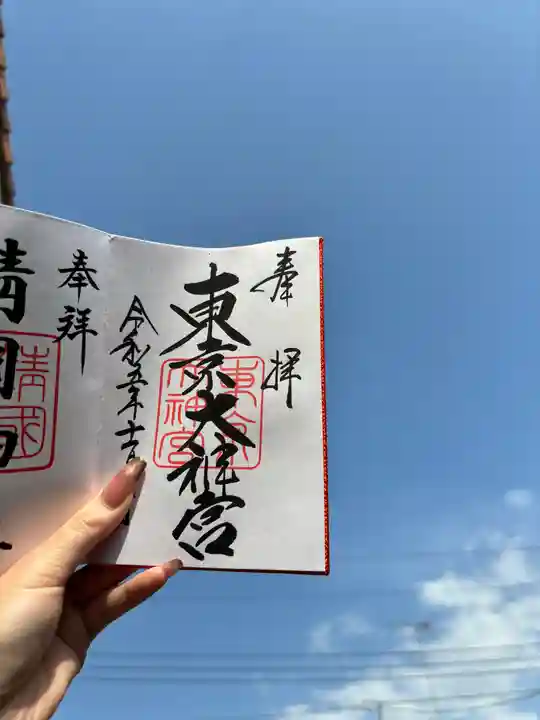 奉拝
東京大神宮
東京大神宮
令和五年十
奉拝
靖國